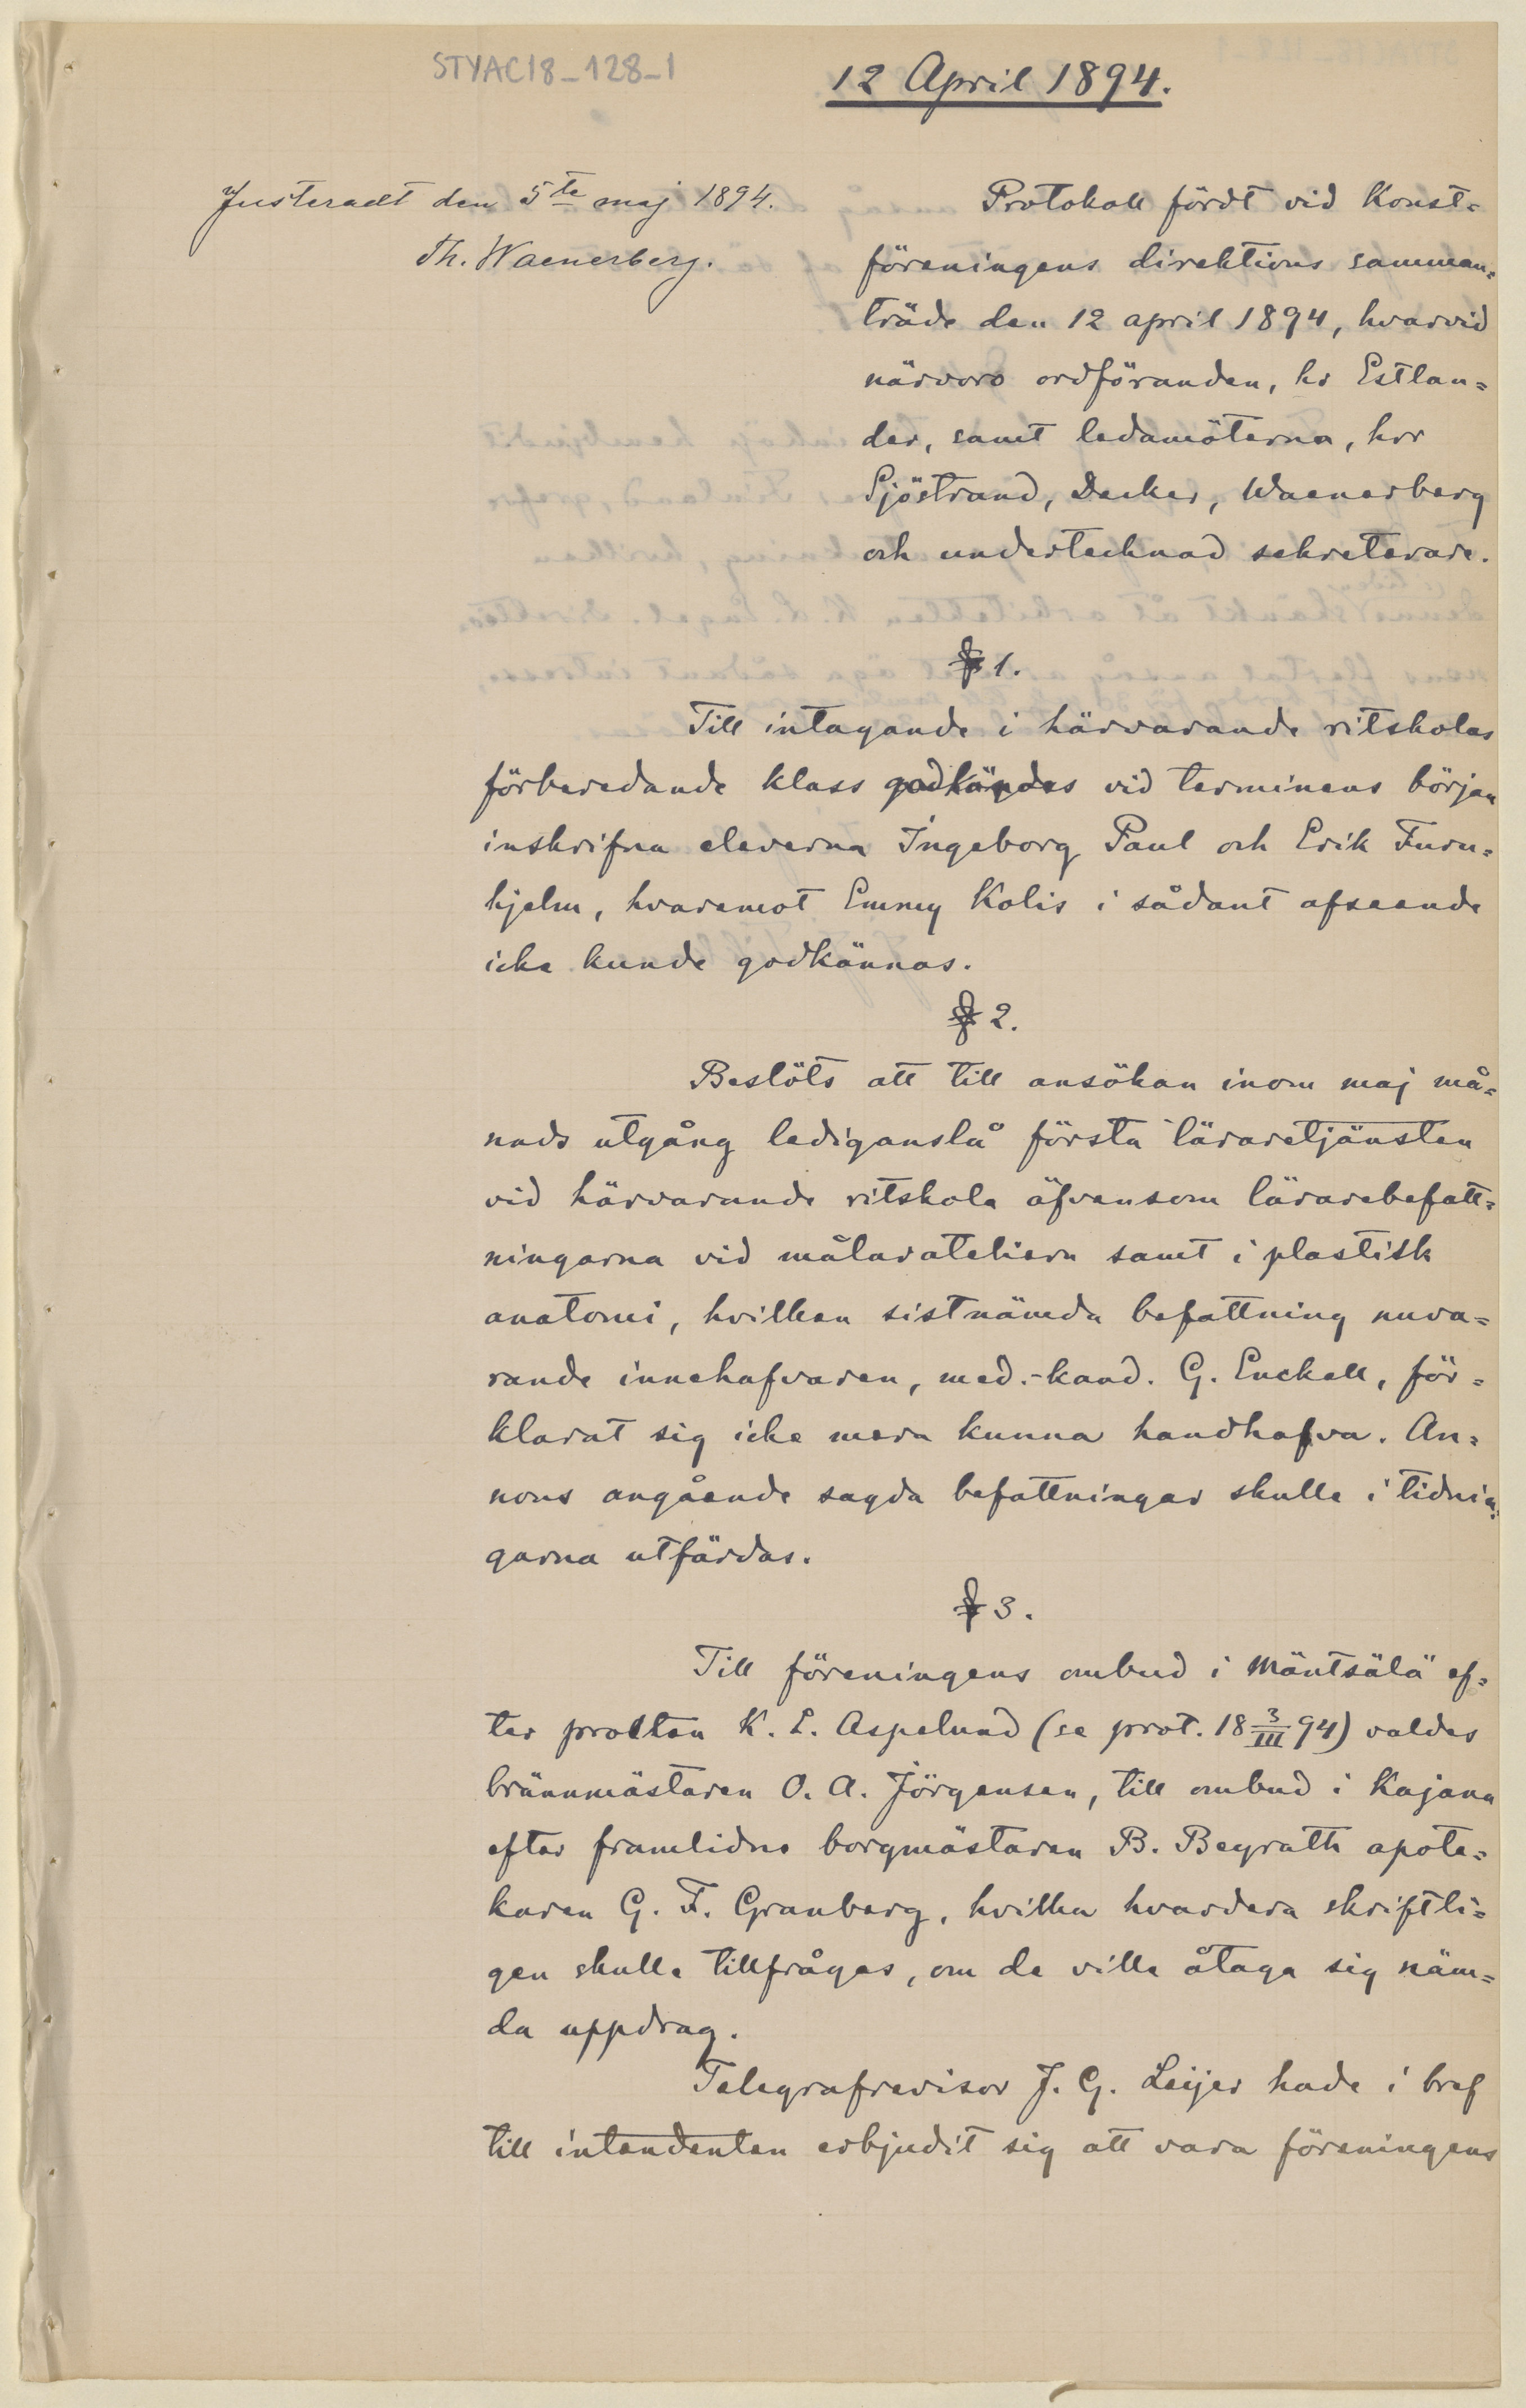 STYAC18_128_1
12 April 1894.
Justeradt den 5te maj 1894.
Th. Waenerberg.
Protokoll fördt vid Konst=
föreningens direktions samman=
träde den 12 april 1894, hvarvid
närvoro ordföranden, hr Estlan=
der, samt ledamöterna, hrr
Sjöstrand, Decker, Waenerberg
och undertecknad sekreterare.
§ 1.
Till intagande i härvarande ritskolas
förberedande klass godkändes vid terminens början
inskrifna eleverna Ingeborg Paul och Erik Furu=
hjelm, hvaremot Emmy Kolis i sådant afseende
icke kunde godkännas.
§ 2.
Beslöts att till ansökan inom maj må=
nads utgång lediganslå första läraretjänsten
vid härvarande ritskola äfvensom lärarebefatt=
ningarna vid målarateliern samt i plastisk
anatomi, hvilken sistnämda befattning nuva=
rande innehafvaren, med.-kand. G. Enckell, för=
klarat sig icke mera kunna handhafva. An=
nons angående sagda befattningar skulle i tidnin=
garna utfärdas.
§ 3.
Till föreningens ombud i Mäntsälä ef=
ter prosten K. E. Aspelund (se prot. 18 3/III 94) valdes
brännmästaren O. A. Jörgensen, till ombud i Kajana
efter framlidne borgmästaren B. Begrath apote=
karen G. F. Granberg, hvilka hvardera skriftli=
gen skulle tillfrågas, om de ville åtaga sig näm=
da uppdrag.
Telegrafrevisor J. G. Leijer hade i bref
till intendenten erbjudit sig att vara föreningens